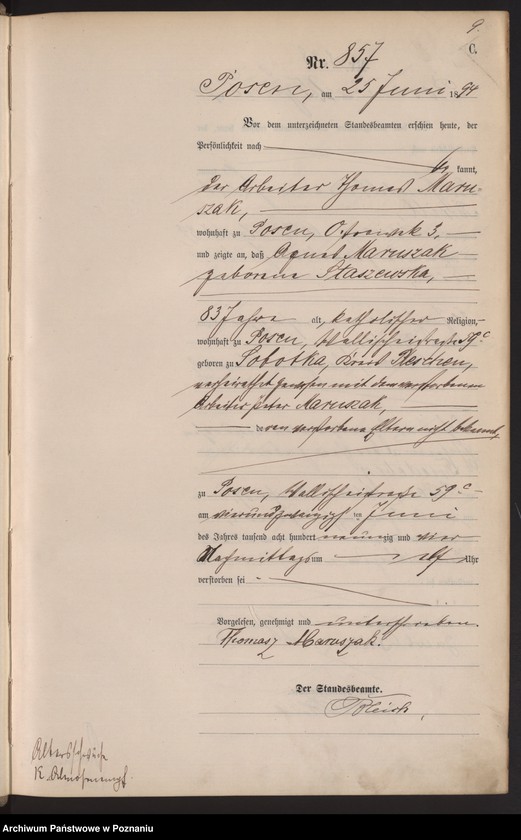 9.
C.
Nr. 857
Posen, am 25 Juni 1894
Vor dem unterzeichneten Standesbeamten erschien heute, der
Persönlichkeit nach
kannt,
der Arbeiter Thomas Maru-
szak,
wohnhaft zu Posen, 3,
und zeigte an, daß Agnes Maruszak
geborene Staszewska,
83 Jahre alt, katholischer Religion,
wohnhaft zu Posen, Wallischeistraße 59c
geboren zu Sobotka, Kreis Pleschen,
verheirathet gewesen mit dem verstorbenen
Arbeiter Peter Maruszak,
deren verstorbene Eltern nicht bekannt,
zu Posen, Wallischeistraße 59c
am vierundzwanzigsten ten Juni
des Jahres tausend acht hundert neunzig und vier
Nachmittags um Uhr
verstorben sei
Vorgelesen, genehmigt und unterschrieben.
Thomasz Maruszak.
Der Standesbeamte.
Altersschwäche
Archiwum Państwowe w Poznaniu